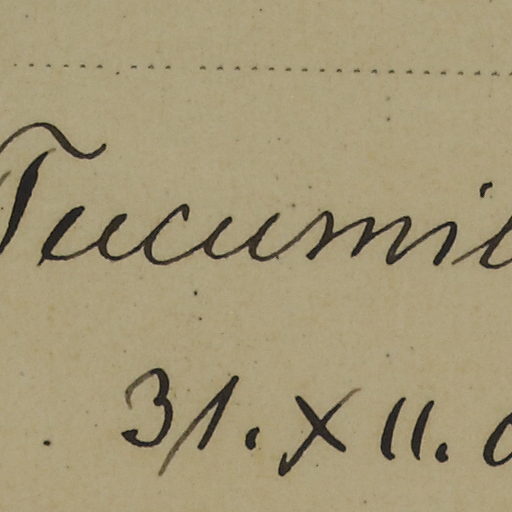 Tucumi
31. XII.